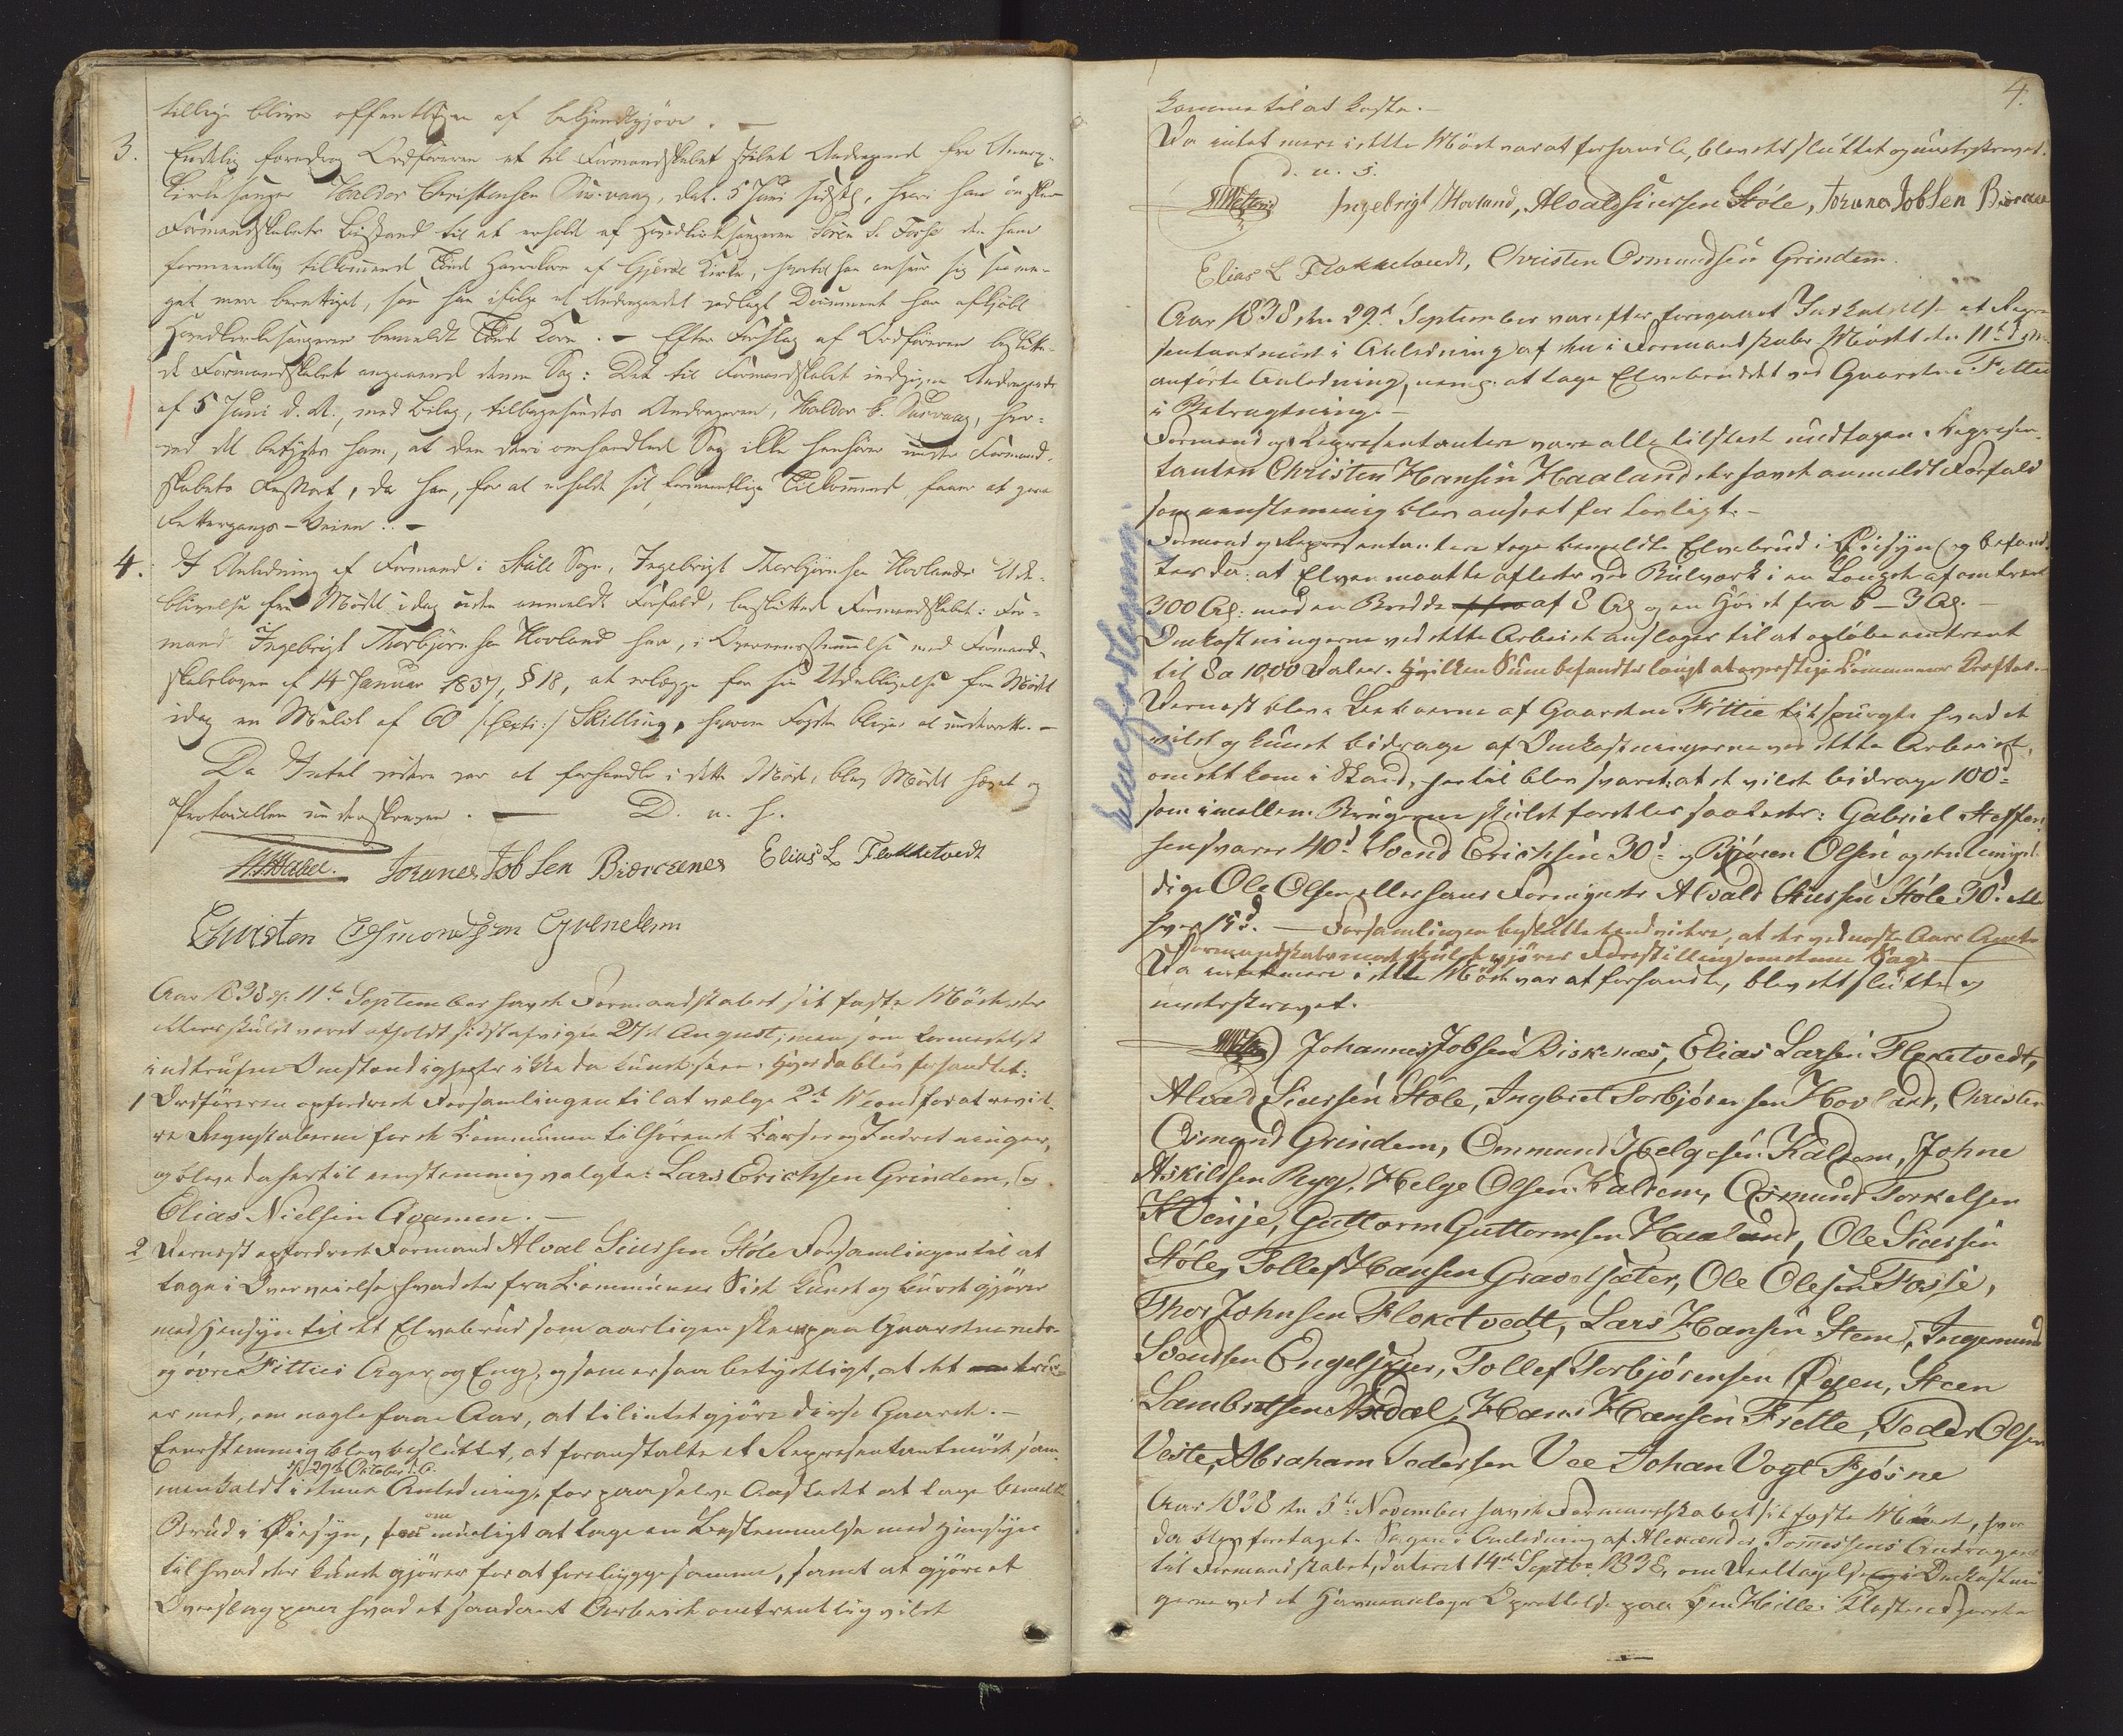 tillige bliver offentligen at bekjendtgjøre. —
3. Endelig foredrog Ordføreren et til Formandskabet stilet Andragende fra Annex-
kirkesanger Haldor Christensen Susvaag, dat. 5 Juni sidstl., hvori han ønsker
Formandskabets Bistand til at erholde af Hovedkirkesangeren Sören S. Fosse den ham
formeentlig tilkommende Tiende Havrekorn af Gjerde Kirke, hvortil han anser sig saa me-
get mere berettiget, som han ifølge et Andragendet vedlagt Document har afkjøbt
Hovedkirkesangeren bemeldte Tiende Korn. — Efter Forslag af Ordføreren beslutte-
de Formandskabet angaaende denne Sag: Det til Formandskabet indgivne Andragende
af 5 Juni d. A., med Bilag, tilbagesendes Andrageren, Haldor C. Susvaag, hvor-
ved det betydes ham, at den deri omhandlede Sag ikke henhører under Formand-
skabets Ressort, da han, for at erholde sit formeentlige Tilkommende, faaer at gaae
Rettergangs-Veien. . —
4. I Anledning af Formand i Støle Sogn, Ingebrigt Thorbjörnsen Hovlands Ude-
blivelse fra Mødet idag uden anmeldt Forfald, besluttede Formandskabet: For-
mand Ingebrigt Thorbjörnsen Hovland har, i Overensstemmelse med Formand-
skabsloven af 14 Januar 1837, § 18, at erlægge for sin Udeblivelse fra Mødet
idag en Mulct af 60 /:sexti:/ Skilling, hvorom Fogden bliver at underrette. —
Da Intet videre var at forhandle i dette Møde, blev Mødet hævet og
Protocollen underskreven. — D. u. s.
Johannes Jobsen Biørcenes Elias L. Flokketvedt
Christen Osmondsen Grendem
Aar 1838 d. 11te September havde Formandskabet sit faste Møde, der
ellers skulde været afholdt sidstafvigte 27de August; men som formedelst
indtrufne Omstændigheder ikke da kunde skee. Hvor da blev forhandlet:
1 Ordføreren opfordrede Forsamlingen til at vælge 2de Mænd for at revide-
re Regnskaberne for de Communen tilhørende Kasser og Indretninger,
og bleve da hertil eenstemmig valgte: Lars Erichsen Grindem, og
Elias Nielsen Qvamen. —
2 Dernæst opfordrede Formand Alval Siursen Støle Forsamlingen til at
tage i Overveielse hvad der fra Communens Side kunde og burde gjøres
med Hensyn til det Elvebrud som aarligen skeer paa Gaardene nedre
og øvre Fitties Ager og Eng, og som er saa betydeligt, at det true-
er med, om nogle faae Aar, at tilintetgjøre disse Gaarde. —
Eenstemmig blev besluttet, at foranstalte et Repræsentantmøde sam-
d. 29de October d. A.
menkaldt i denne Anledning, for paa selve Aastedet at tage bemeldte
om
Brud i Øiesyn, mueligt at tage en Bestemmelse med Hensyn
til hvad der kunde gjøres for at forebygge samme, samt at gjøre et
Overslag paa hvad et saadant Arbeide omtrentlig vilde
4.
komme til at koste. —
Da intet mere i dette Møde var at forhandle, blev det sluttet og underskrevet.
d. u. s.
Ingebrigt Hovland, Alvald Siursen Støle, Johannes Jobsen Biørcenes
Elias L. Flokketvedt, Christen Osmundsen Grindem.
Aar 1838 den 29de September var efter foregaaet Indkaldelse et Repræ-
sentantmøde i Anledning af den i Formandskabs Mødet den 11te d. M.
anførte Anledning, nemlig: at tage Elvebruddet ved Gaardene Fittie
i Betragtning. —
Formænd og Repræsentantere vare alle tilstede undtagen Repræsen-
tanten Christen Hansen Haaland der havde anmeldt Forfald
som eenstemmig blev anseet for lovligt. —
Formænd og Repræsentantere toge bemeldte Elvebrud i Øiesyn og befand-
tes da: at Elven maatte afledes ved Bulværk i en Længde af omtrent
300 Al: med en Bredde af 8 Al og en Høide fra 5 – 3 Al. —
Omkostningerne ved dette Arbeide ansloges til at opløbe omtrent
til 8 a 1000 Daler. Hvilken Sum befandtes langt at overstige Communens Kræfter. —
Dernæst bleve Beboerne af Gaardene Fittie tilspurgte hvad de
vilde og kunde bidrage af Omkostningerne ved dette Arbeide,
om det kom i Stand, hertil blev svaret: at de vilde bidrage 100d
som imellem Brugerne skulde fordeles saaledes: Gabriel Steffen-
sen svarer 40d Svend Erichsen 30d og Björen Olsen og den umyn-
dige Ole Olsen eller hans Formynder Alvald Siursen Støle 30d eller
hver 15d. — Forsamlingen besluttede endvidere, at der ved næste Aars Amts
Formandskabsmøde skulde gjøres Forestilling om denne Sag. —
Da intet mere i dette Møde var at forhandle, blev det sluttet og
underskrevet.
Johannes Jobsen Biskenes, Elias Larsen Floketvedt,
Alvald Siursen Støle, Ingbret Torbjørensen Hovland, Christen
Osmund Grindem, Ommund Helgesen Kaldem, Johne
Askildsen Rygg, Helge Olsen Kaldem, Osmund Torkelsen
Høinje, Guttorm Guttormsen Haaland, Ole Siursen
Støle, Tollef Hansen Gravelsæter, Ole Olesen Fosse,
Thor Johnsen Floketvedt, Lars Hansen Stene, Ingemund
Svendsen Engelsgjer, Tollef Torbjörensen Øyen, Steen
Lambretsen Nødal, Hans Hansen Frette, Peder Olsen
Veste, Abraham Pedersen Vee Johan Vogt Fjøsne
Aar 1838 den 5te November havde Formandskabet sit faste Møde, hvor
da blev foretaget. Sagen i Anledning af Alexander Tønnesens Andragende
til Formandskabet, dateret 14de Septbr. 1838, om Deeltagelse i Omkostnin-
gerne ved et Havneanlægs Oprettelse paa
Elveforbygning.